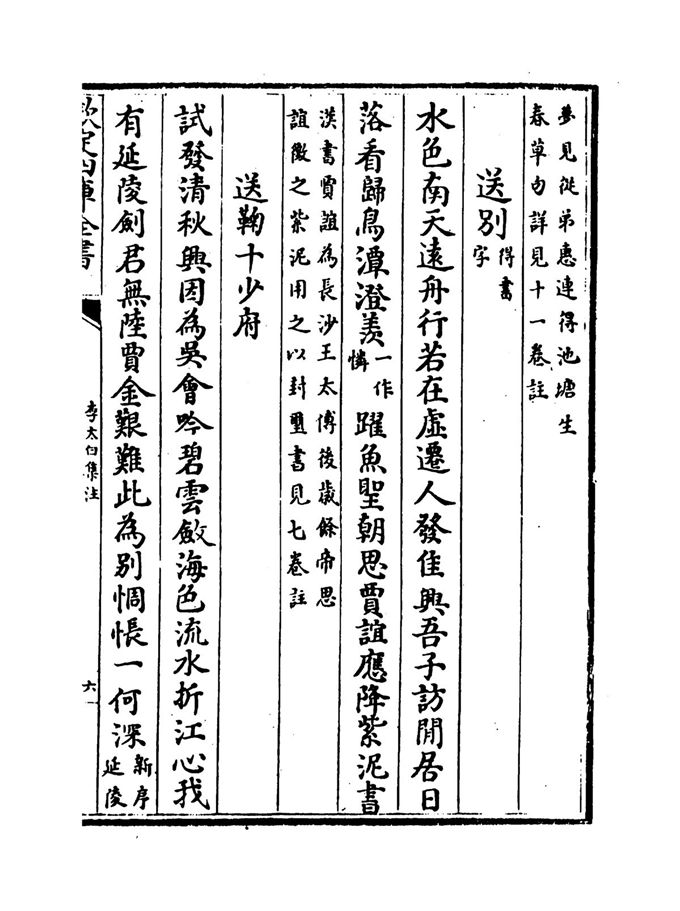 夢見從弟惠連得池塘生
春草句詳見十一卷註
送别得書字
水色南天遠舟行若在虛遷人發佳興吾子訪閒居日
落看歸鳥潭澄羨一作憐躍魚聖朝思賈誼應降紫泥書
漢書賈誼為長沙王太傅後歲餘帝思
誼徵之紫泥用之以封璽書見七卷註
送鞠十少府
試發清秋興因為吳會吟碧雲斂海色流水折江心我
有延陵劍君無陸賈金艱難此為别惆悵一何深新序延陵
欽定四庫全書
李太白集注
六